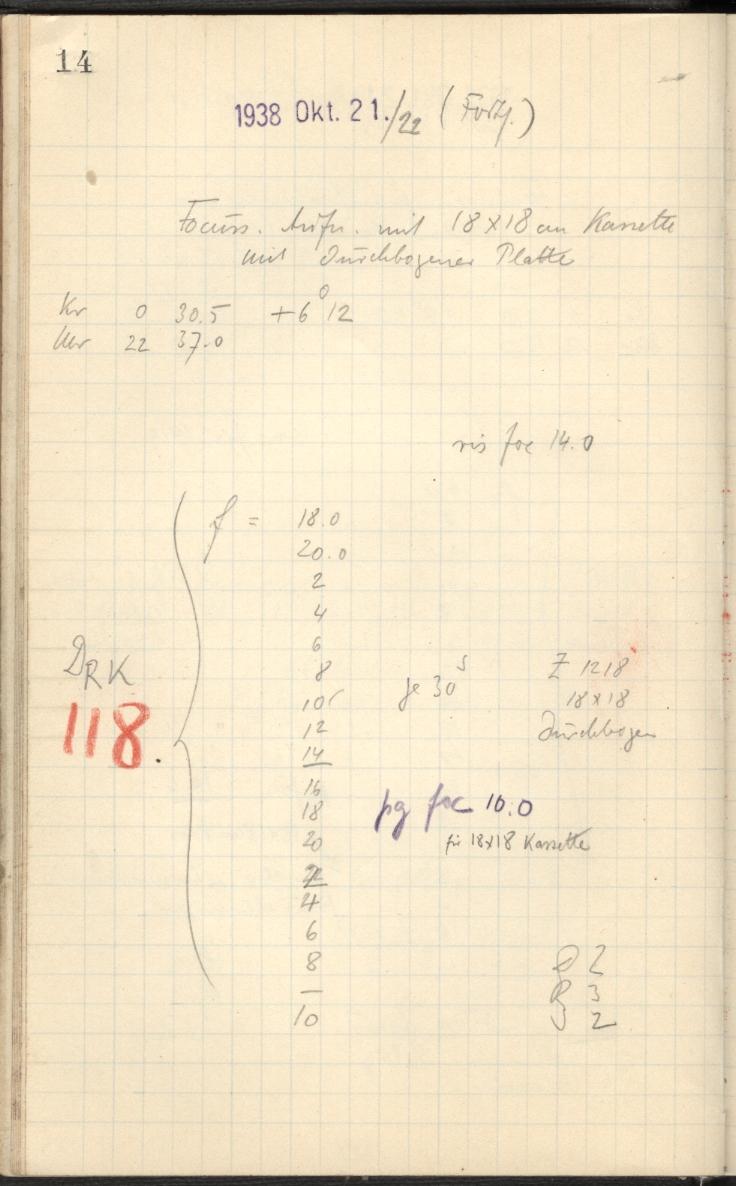 14
1938 Okt. 21./22 (Forts.)
Focuss. Aufn. mit 18x18 cm Kassette
mit durchbogener Platte
Kr 0 30.5 +6° 12
Uhr 22 37.0
vis foc 14.0
f = 18.0
20.0
2
4
6
8
10
12
14
16
18
20
4
6
8
10
DRK
118.
je 30s
Z 1218
18x18
durchbogen
pg foc 10.0
für 18x18 Kassette
2
3
2